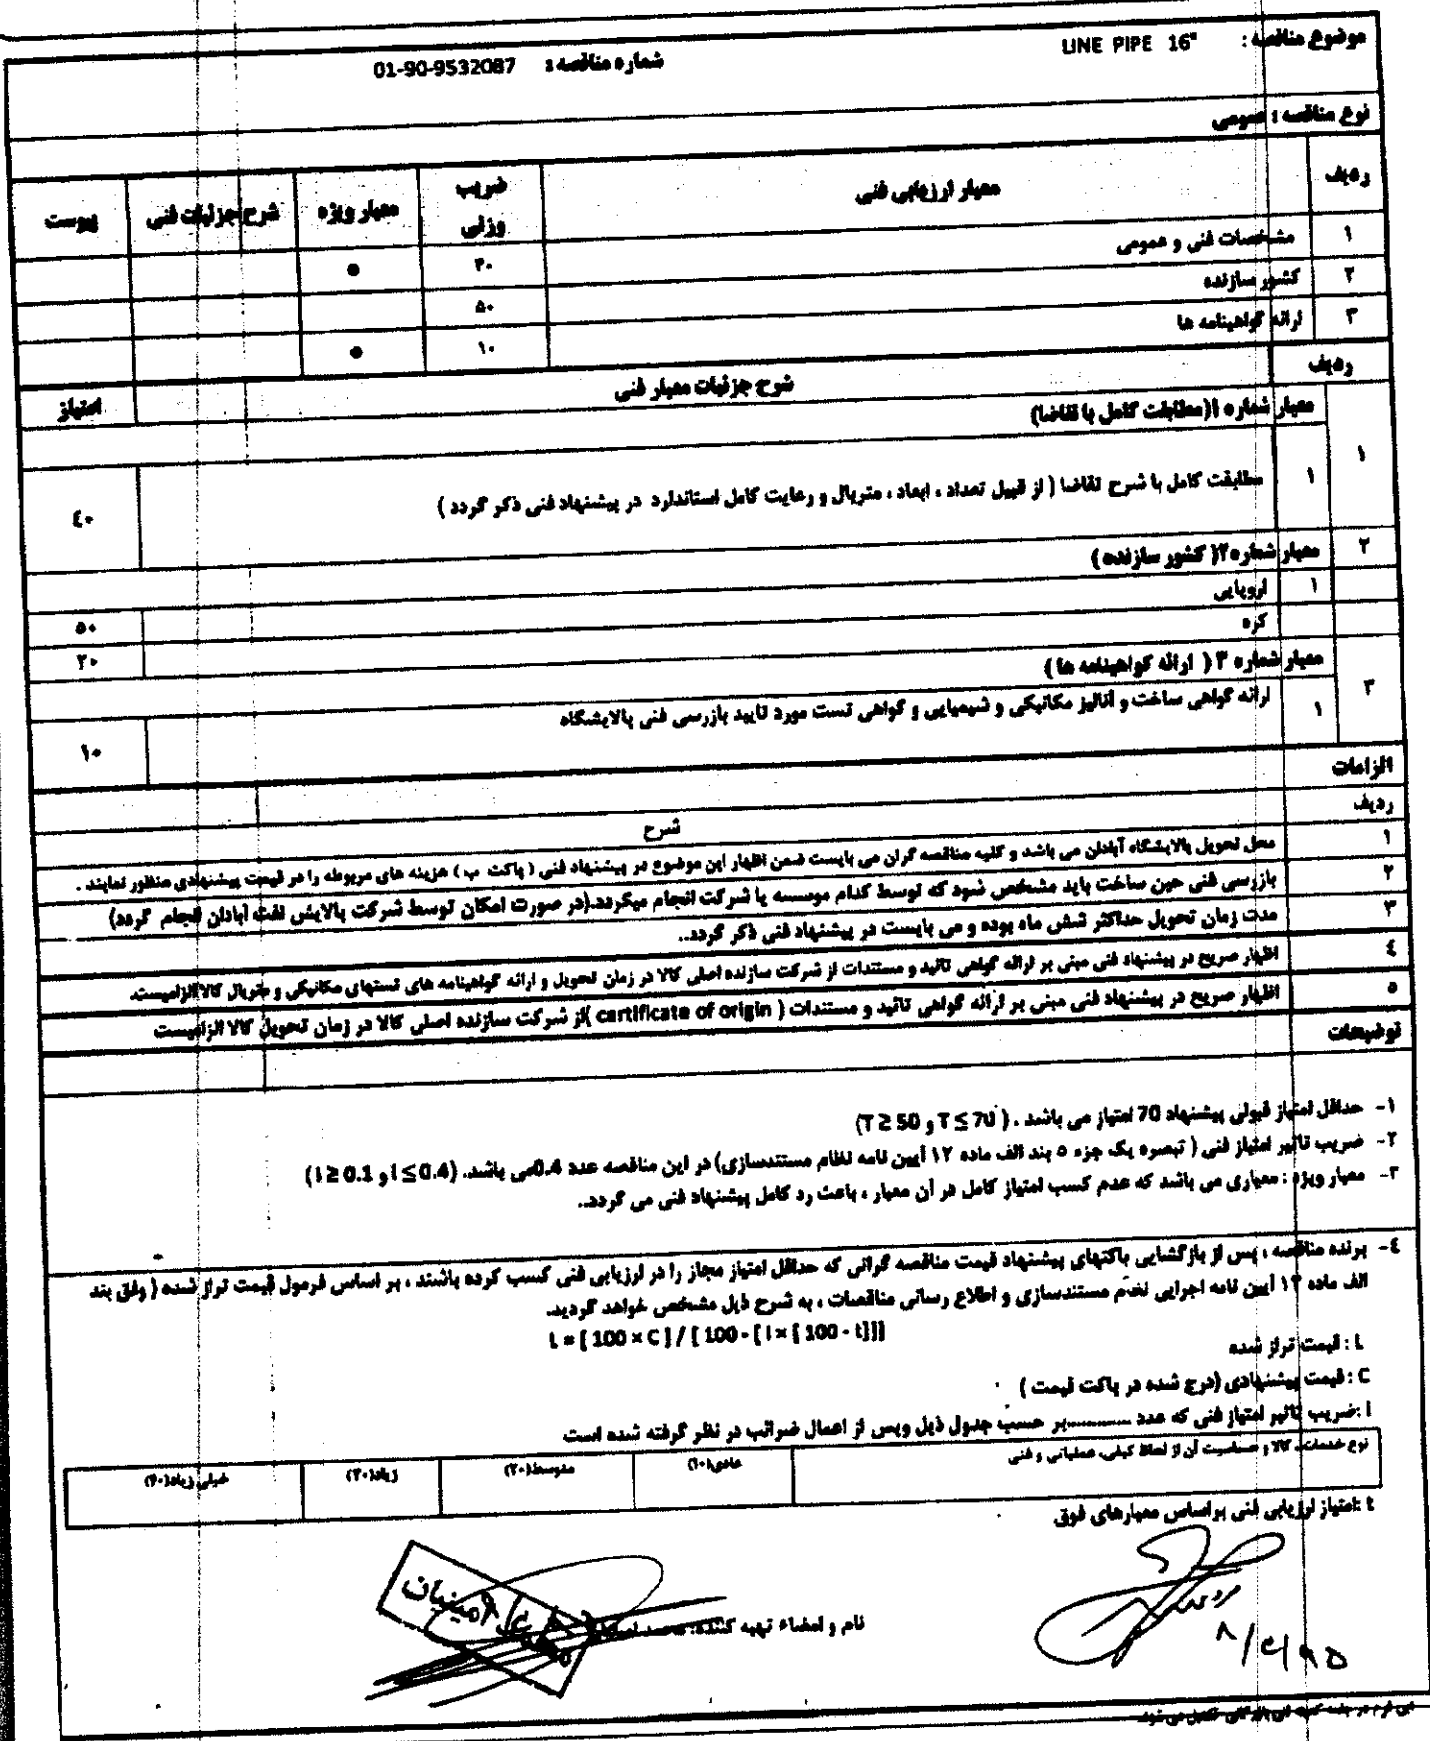 موضوع مناقصه : LINE PIPE 16" شماره مناقصه : 01-90-9532087
نوع مناقصه : عمومی
ردیف معیار ارزیابی فنی ضریب وزنی معیار ویژه شرح جزئیات فنی پیوست
۱ مشخصات فنی و عمومی ۴۰ ●
۲ کشور سازنده ۵۰
۳ ارائه گواهینامه ها ۱۰ ●
ردیف شرح جزئیات معیار فنی امتیاز
۱ معیار شماره ۱(مطابقت کامل با تقاضا)
۱ مطابقت کامل با شرح تقاضا ( از قبیل تعداد ، ابعاد ، متریال و رعایت کامل استاندارد در پیشنهاد فنی ذکر گردد ) ٤۰
۲ معیار شماره۲( کشور سازنده )
۱ اروپایی ۵۰
کره ۲۰
۳ معیار شماره ۳ ( ارائه گواهینامه ها )
۱ ارائه گواهی ساخت و آنالیز مکانیکی و شیمیایی و گواهی تست مورد تایید بازرسی فنی پالایشگاه ۱۰
الزامات
ردیف شرح
۱ محل تحویل پالایشگاه آبادان می باشد و کلیه مناقصه گران می بایست ضمن اظهار این موضوع در پیشنهاد فنی ( پاکت ب ) هزینه های مربوطه را در قیمت پیشنهادی منظور نمایند .
۲ بازرسی فنی حین ساخت باید مشخص شود که توسط کدام موسسه یا شرکت انجام میگردد.(در صورت امکان توسط شرکت پالایش نفت آبادان انجام گردد)
۳ مدت زمان تحویل حداکثر شش ماه بوده و می بایست در پیشنهاد فنی ذکر گردد..
٤ اظهار صریح در پیشنهاد فنی مبنی بر ارائه گواهی تائید و مستندات از شرکت سازنده اصلی کالا در زمان تحویل و ارائه گواهینامه های تستهای مکانیکی و متریال کالا الزامیست.
٥ اظهار صریح در پیشنهاد فنی مبنی بر ارائه گواهی تائید و مستندات ( certificate of origin )از شرکت سازنده اصلی کالا در زمان تحویل کالا الزامیست
توضیحات
۱- حداقل امتیاز قبولی پیشنهاد 70 امتیاز می باشد . ( T ≤ 70 و T ≥ 50)
۲- ضریب تاثیر امتیاز فنی ( تبصره یک جزء ٥ بند الف ماده ۱۲ آیین نامه نظام مستندسازی) در این مناقصه عدد 0.4می باشد. (I ≤ 0.4 و I ≥ 0.1 )
۳- معیار ویژه : معیاری می باشد که عدم کسب امتیاز کامل در آن معیار ، باعث رد کامل پیشنهاد فنی می گردد..
٤- برنده مناقصه ، پس از بازگشایی پاکتهای پیشنهاد قیمت مناقصه گرانی که حداقل امتیاز مجاز را در ارزیابی فنی کسب کرده باشند ، بر اساس فرمول قیمت تراز شده ( وفق بند
الف ماده ۱۲ آیین نامه اجرایی نظام مستندسازی و اطلاع رسانی مناقصات ، به شرح ذیل مشخص خواهد گردید.
L = [ 100 × C ] / [ 100 - [ I × [ 100 - t]]]
L : قیمت تراز شده
C : قیمت پیشنهادی (درج شده در پاکت قیمت )
I :ضریب تاثیر امتیاز فنی که عدد ............بر حسب جدول ذیل وپس از اعمال ضرائب در نظر گرفته شده است
نوع خدمات، کالا و حساسیت آن از لحاظ کیفی، عملیاتی و فنی عادی(۱۰) متوسط(۲۰) زیاد(۳۰) خیلی زیاد(۴۰)
t :امتیاز ارزیابی فنی براساس معیارهای فوق
نام و امضاء تهیه کننده: محمد
امینیان
این فرم در